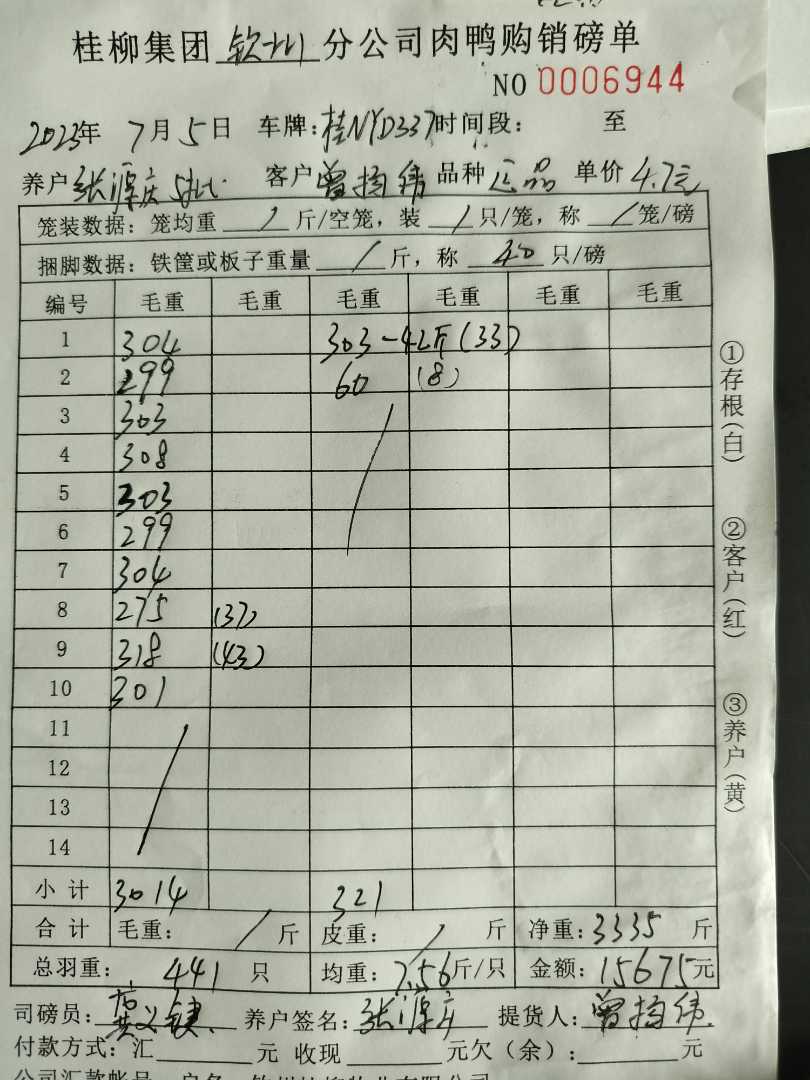 桂柳集团 钦州 分公司肉鸭购销磅单
NO 0006944
2023年 7月5日 车牌:桂NYD337 时间段: 至
养户 张源庆 5批 客户 曾拥伟 品种 正品 单价 4.7元
笼装数据: 笼均重 / 斤/空笼, 装 / 只/笼, 称 / 笼/磅
捆脚数据: 铁筐或板子重量 / 斤, 称 40 只/磅
编号 毛重 毛重 毛重 毛重 毛重 毛重
1 304 303-42斤(33)
2 299 60 (8)
3 303
4 308
5 303
6 299
7 304
8 275 (37)
9 318 (43)
10 301
11
12
13
14
小计 3014 321
合计 毛重: / 斤 皮重: / 斤 净重: 3335 斤
总羽重: 441 只 均重: 7.56斤/只 金额: 15675元
司磅员: 黄义键 养户签名: 张源庆 提货人: 曾拥伟
付款方式: 汇 元 收现 元欠(余): 元
①存根(白)
②客户(红)
③养户(黄)